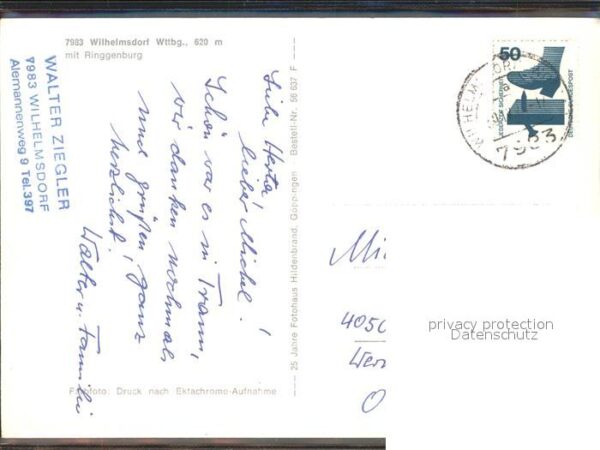 7983 Wilhelmsdorf Wttbg., 620 m
mit Ringgenburg
WALTER ZIEGLER
7983 WILHELMSDORF
Alemannenweg 9 Tel. 397
Liebe Herta!
lieber Michel!
Schön war es in Traun,
wir danken nochmals
und grüßen ganz
herzlichst!
Walter u. Familie
Farbfoto: Druck nach Ektachrome-Aufnahme
25 Jahre Fotohaus Hildenbrand, Göppingen Bestell-Nr. 56 637 F
50
DEUTSCHE BUNDESPOST
7983
Mi
4050
O
privacy protection
Datenschutz